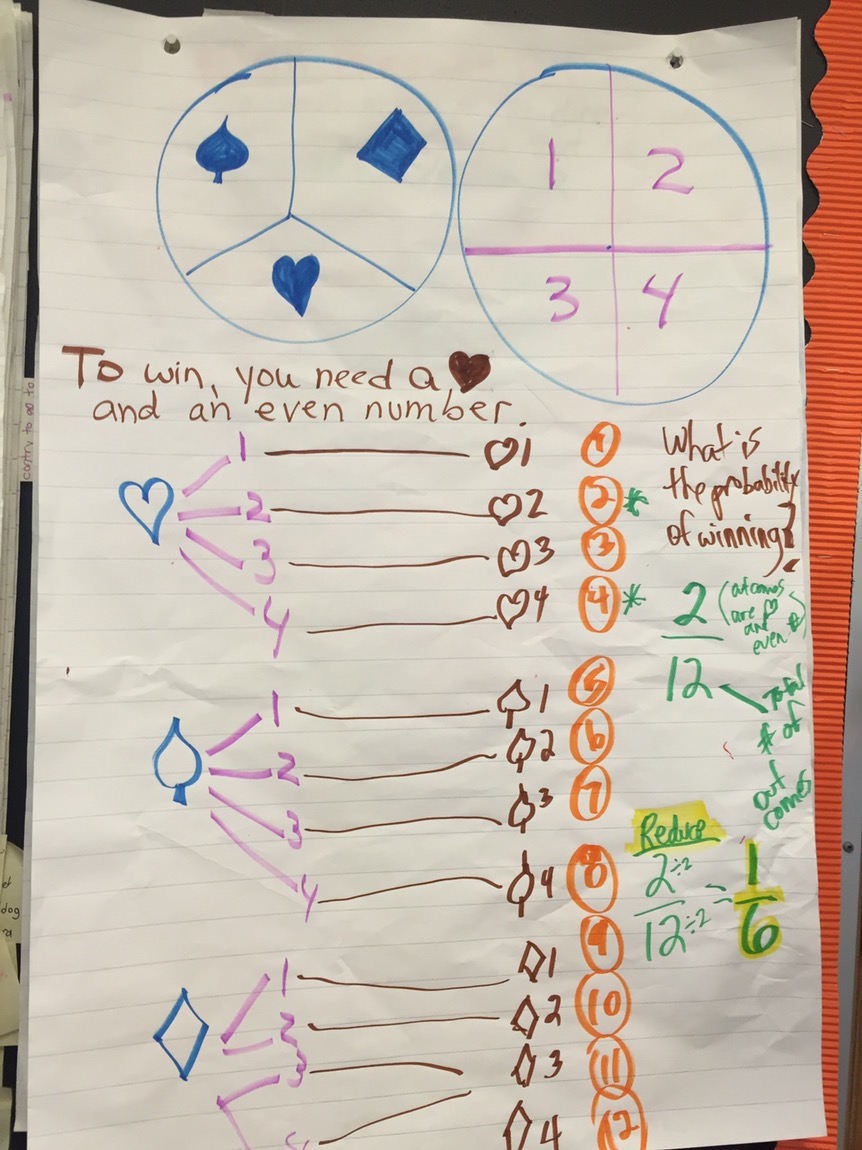 1 2
3 4
To win, you need a ♥
and an even number.
1 ♡1 1
2 ♡2 2 *
3 ♡3 3
4 ♡4 4 *
What is
the probability
of winning?
2
12
(outcomes
are ♡
and
even #)
Total
# of
out
comes
1 ♤1 5
2 ♤2 6
3 ♤3 7
4 ♤4 8
Reduce
2÷2 = 1
12÷2 6
1 ♢1 9
2 ♢2 10
3 ♢3 11
4 ♢4 12
dog